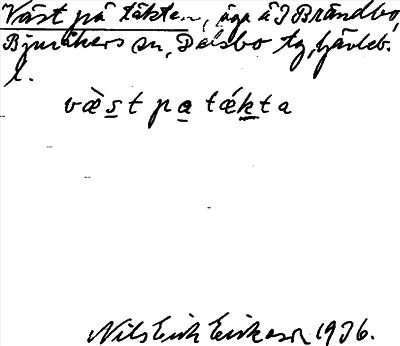 Väst på täkten, äga å I Brändbo,
Bjuråkers sn, Delsbo tg, Gävleb.
l.
væ̀st pa tǽkta
Nils Erik Erikson 1936.